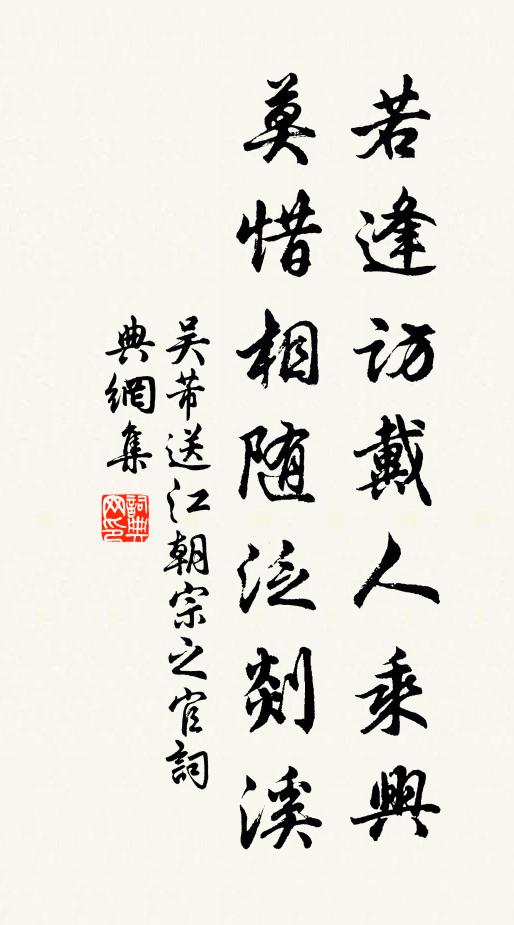 若逢訪戴人乘興
莫惜相随泛剡溪
吴芾送江朝宗之官詞
典網集
詞典网印